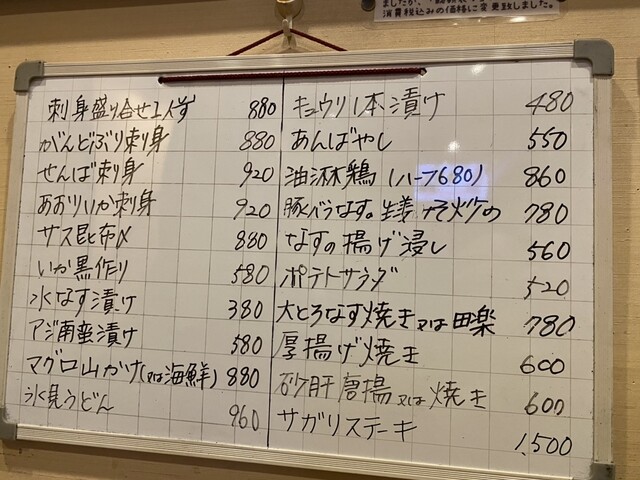 ましたが、
消費税込みの価格に変更致しました。
刺身盛り合せ1人前 880
がんどぶり刺身 880
せんば刺身 920
あおりいか刺身 920
サス昆布〆 880
いか黒作り 580
水なす漬け 380
アジ南蛮漬け 580
マグロ山かけ(又は海鮮) 880
氷見うどん 960
キュウリ1本漬け 480
あんばやし 550
油淋鶏 (ハーフ680) 860
豚バラなす。生姜みそ炒め 780
なすの揚げ浸し 560
ポテトサラダ 520
大とろなす焼き又は田楽 780
厚揚げ焼き 600
砂肝唐揚又は焼き 600
サガリステーキ 1,500